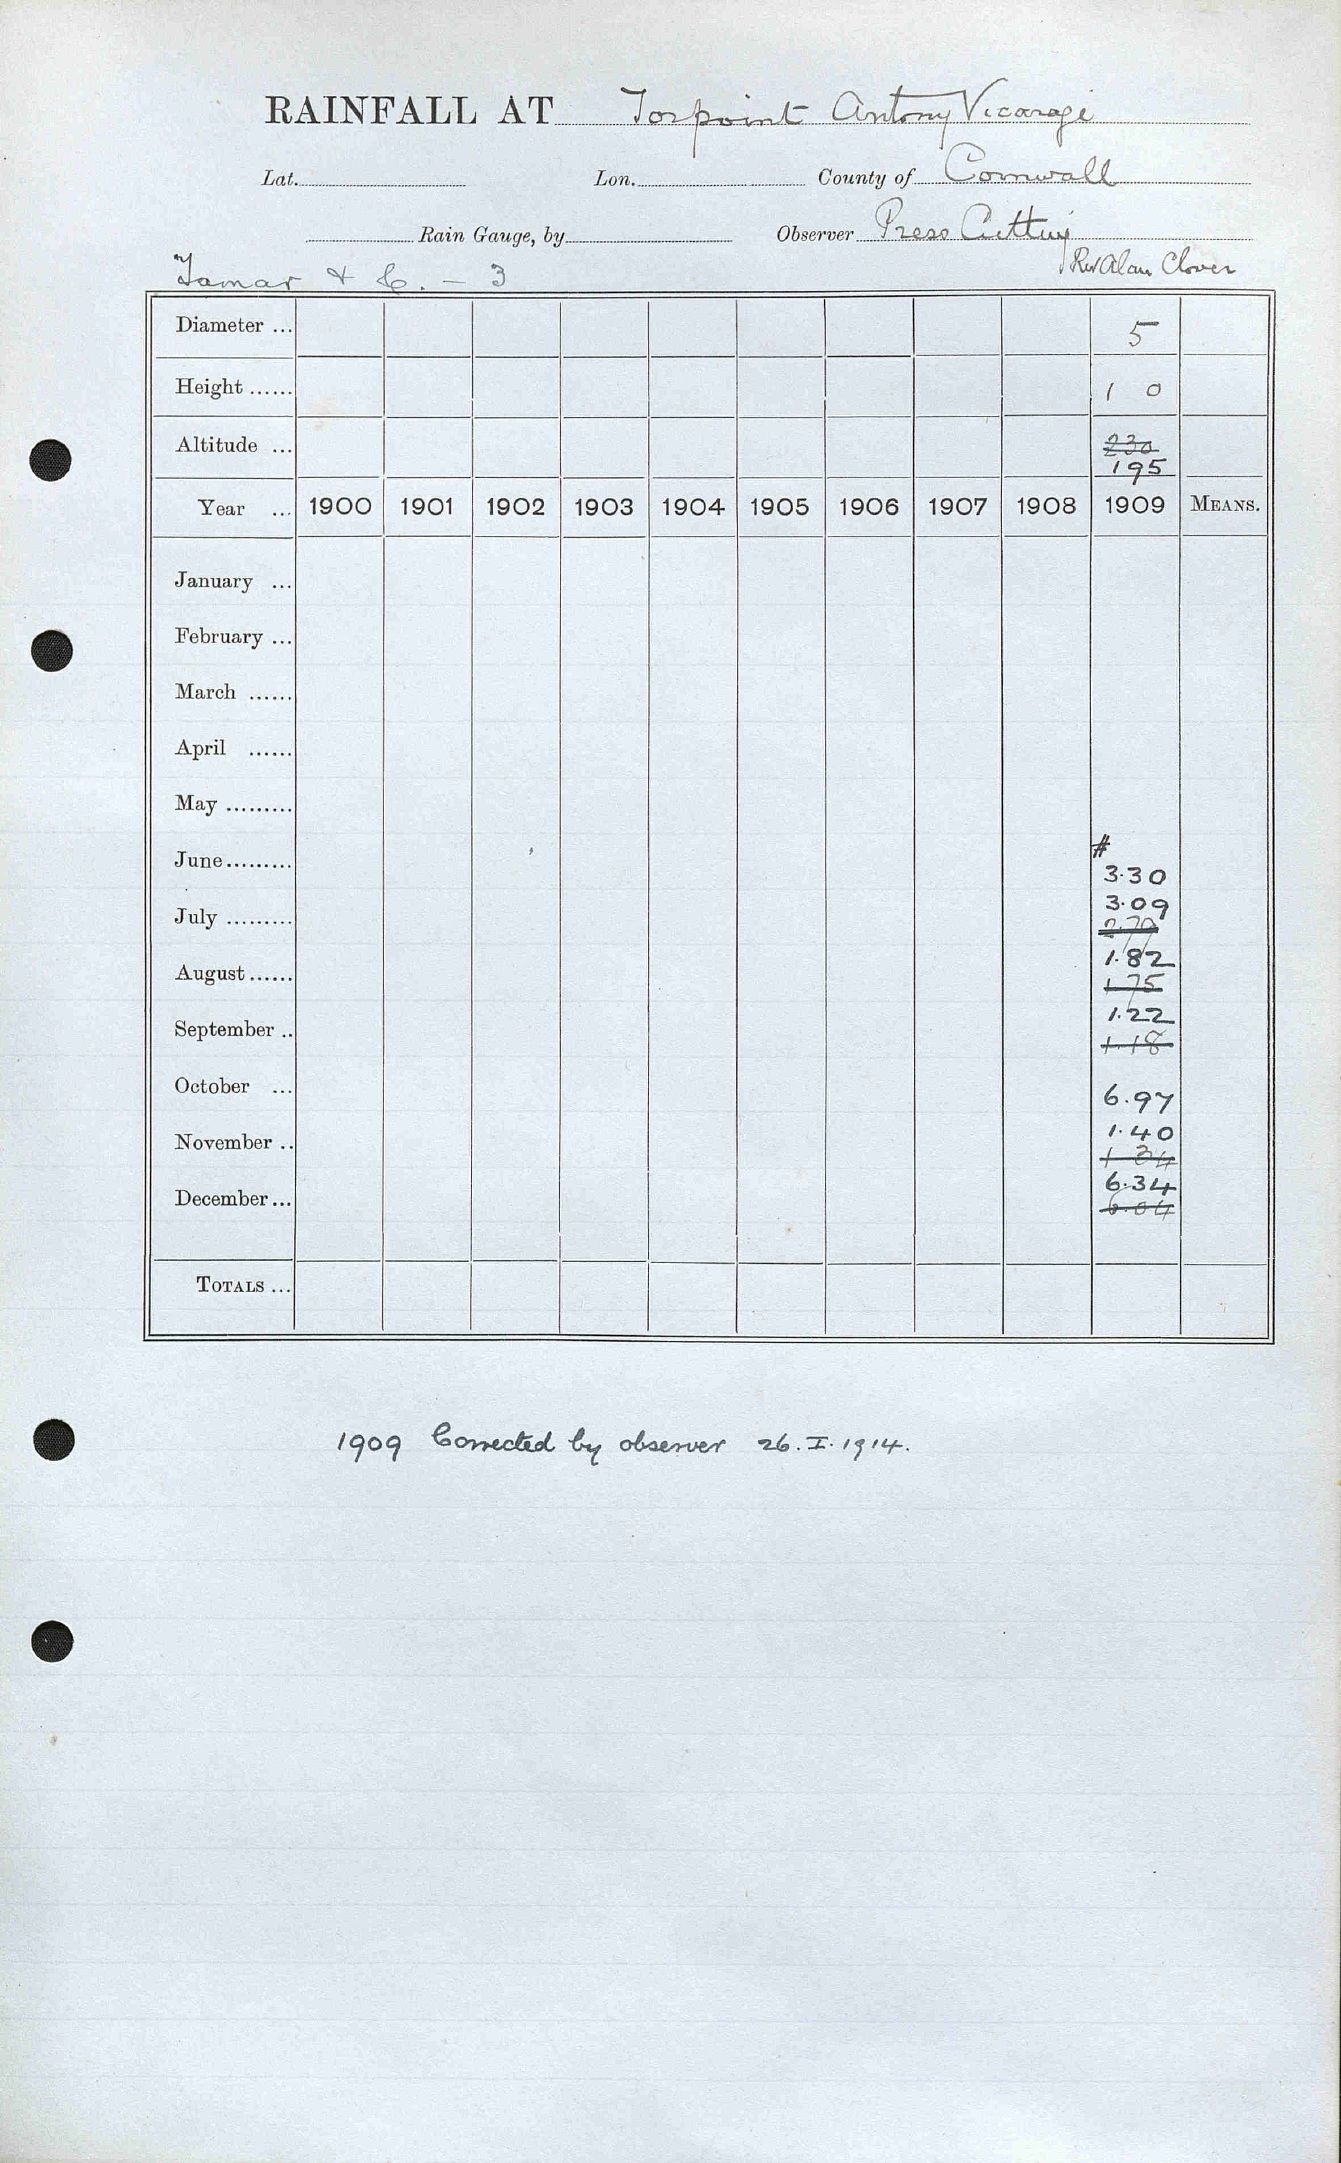 RAINFALL AT Torpoint Antony Vicarage
Lat. Lon. County of Cornwall
Rain Gauge, by Observer Press Cutting
Rev Alan Clover
Tamar & C. - 3
Diameter ... 5
Height ...... 1 0
Altitude ... 230
195
Year ... 1900 1901 1902 1903 1904 1905 1906 1907 1908 1909 MEANS.
January ...
February ...
March ......
April ......
May .........
#
June......... 3.30
July ......... 3.09
2.79
August...... 1.82
1.75
September .. 1.22
1.18
October ... 6.97
November .. 1.40
1 34
December... 6.34
6.04
TOTALS ...
1909 Corrected by observer 26. I. 1914.